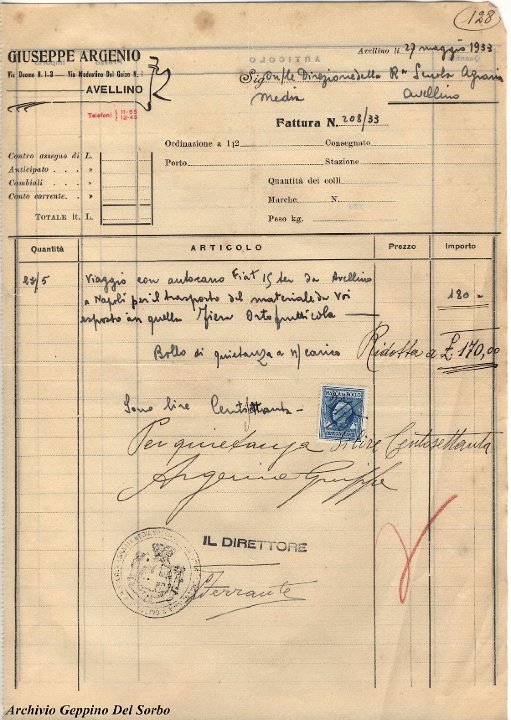 128
GIUSEPPE ARGENIO
Via Duomo N. 1-3 — Via Modestino Del Gaizo N. 1
AVELLINO
Telefoni { 11-65
12-45
Avellino li 27 maggio 1933
Sig. On/le Direzione della Ra Scuola Agraria
Media Avellino
Fattura N. 208/33
Ordinazione a 1/2
Consegnato
Porto
Stazione
Quantità dei colli
Marche N.
Peso kg.
Contro assegno di L.
Anticipato . . . »
Cambiali . . . . »
Conto corrente. . »
TOTALE it. L.
Quantità ARTICOLO Prezzo Importo
23/5 Viaggio con autocarro Fiat 15 ter da Avellino
a Napoli per il trasporto del materiale da Voi 180 -
esposto in quella Fiera Ortofrutticola —
Bollo di quietanza a n/carico Ridotta a £ 170,00
Sono lire Centosettanta -
MARCA DA BOLLO
Per quietanza di lire Centosettanta
Argenio Giuseppe
IL DIRETTORE
Ferrante
Archivio Geppino Del Sorbo